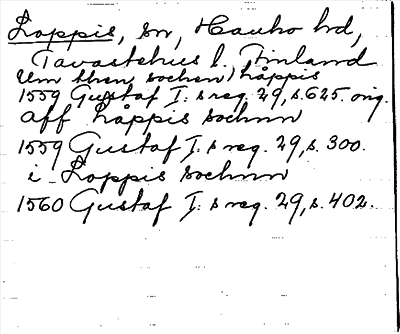 Loppis, sn, Hauho hd,
Tavastehus l., Finland
Um then sochen) håppis
1559 Gustaf I:s reg. 29, s. 625. orig.
aff håppis sochnn
1559 Gustaf I:s reg. 29, s. 300.
i Loppis sochnn
1560 Gustaf I:s reg. 29, s. 402.